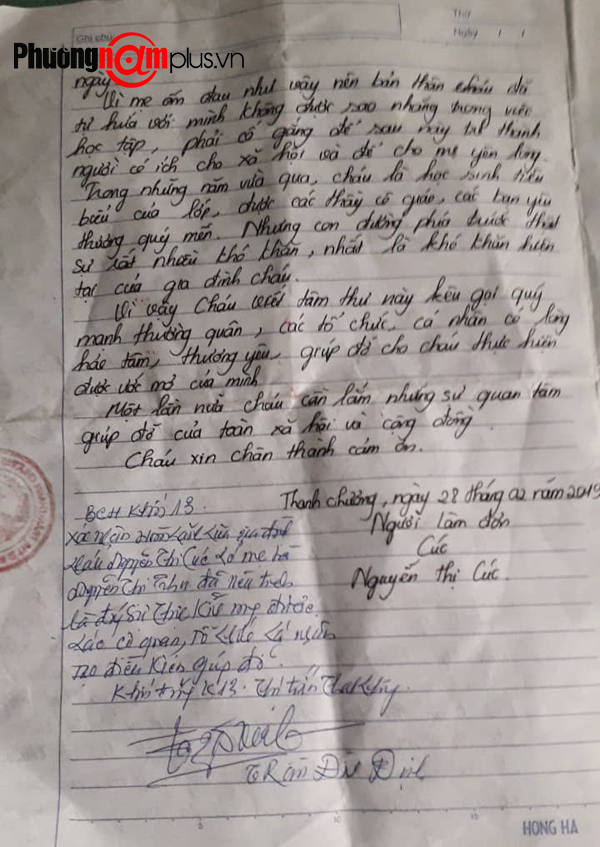 Phươngn@mplus.vn
Ghi chú:
Thứ
Ngày / /
ngày.
Vì mẹ ốm đau như vậy nên bản thân cháu đã
tự hứa với mình không được sao nhãng trong việc
học tập, phải cố gắng để sau này trở thành
người có ích cho xã hội và để cho mẹ yên lòng.
Trong những năm vừa qua, cháu là học sinh tiêu
biểu của lớp, được các thầy cô giáo, các bạn yêu
thương quý mến. Nhưng con đường phía trước thật
sự rất nhiều khó khăn, nhất là khó khăn hiện
tại của gia đình cháu.
Vì vậy Cháu viết tâm thư này kêu gọi quý
mạnh thường quân, các tổ chức, cá nhân có lòng
hảo tâm, thương yêu, giúp đỡ cho cháu thực hiện
được ước mơ của mình
Một lần nữa cháu cần lắm những sự quan tâm
giúp đỡ của toàn xã hội và cộng đồng.
Cháu xin chân thành cảm ơn.
Thanh Chương, ngày 28 tháng 02 năm 2019
Người làm đơn
Cúc
Nguyễn Thị Cúc.
BCH Khối 13.
Xác nhận hoàn cảnh của gia đình
cháu Nguyễn Thị Cúc có mẹ là
Nguyễn Thị đã nêu trên
là đúng sự thực Kính mong được
các cơ quan, Tổ chức cá nhân
tạo điều kiện giúp đỡ.
Khối trưởng K13. Thị trấn
Trần Đình Định
HONG HA